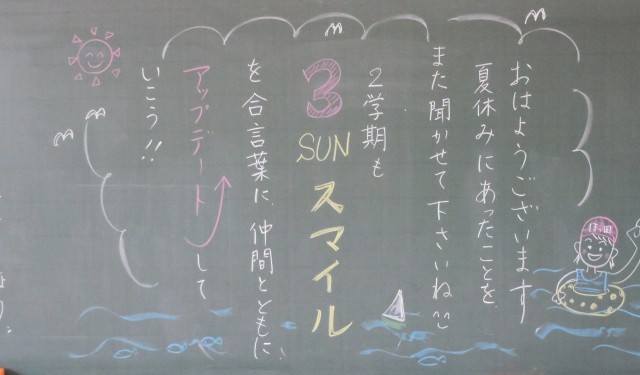 おはようございます
夏休みにあったことを
また聞かせて下さいね
2学期も
3 SUN スマイル
を合言葉に、仲間とともに、
アップデートして
いこう!!